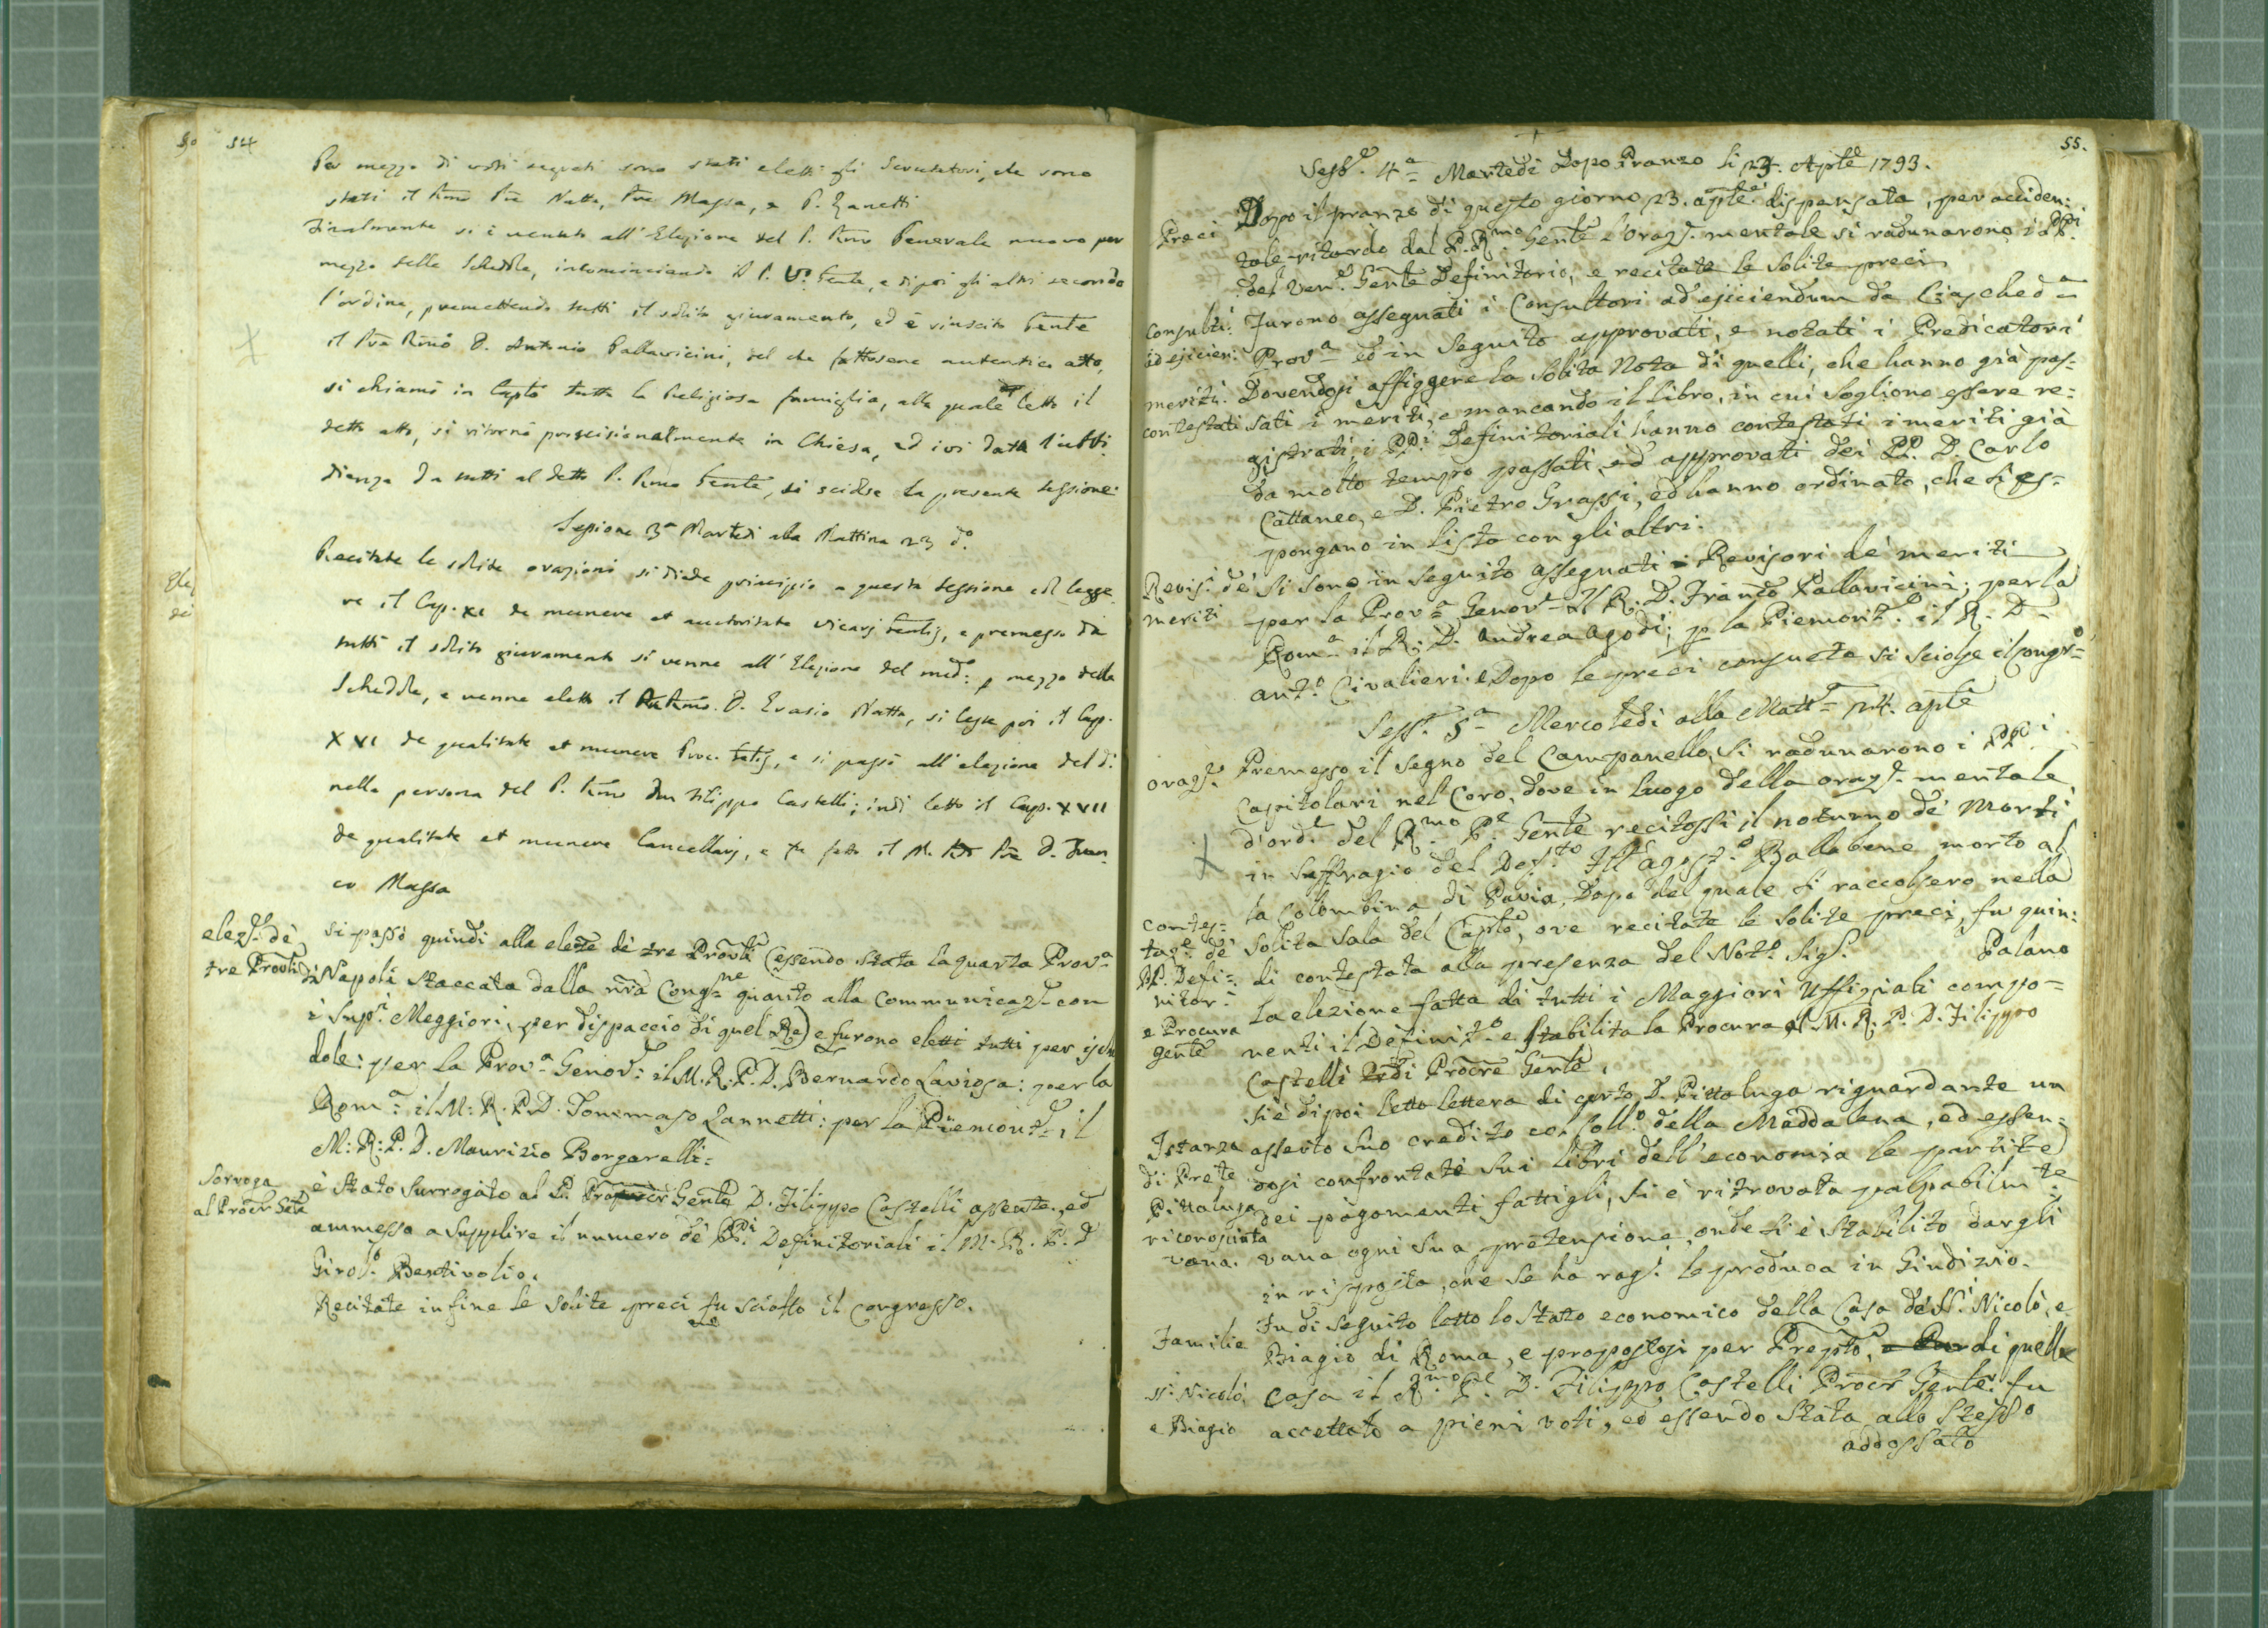 54
Per mezzo di voti segreti sono stati eletti gli Scrutatori, che sono
stati il Rmo Pre Natta, Pre Massa, e P. Zanetti
Finalmente si è venuto all'Elezione del P. Rmo Generale nuovo per
mezzo delle Schedole, incominciando il P. V. Gente, e dipoi gli altri secondo
l'ordine, premettendo tutti il solito giuramento, ed è riuscito Gente
il Pre Rmo D. Antonio Pallavicini, del che fattosene autentico atto,
si chiamò in Capto tutta la Religiosa famiglia, alla quale letto il
detto atto, si ritornò processionalmente in Chiesa, ed ivi data l'ubbi-
dienza da tutti al detto P. Rmo Gente, si sciolse la presente sessione.
Sessione 3a Martedì alla Mattina 23 do.
Recitate le solite orazioni si diede principio a questa sessione col legge
re il Cap. XI de munere et auctoritate Vicarj Gentis, e premesso da
tutti il solito giuramento si venne all'Elezione del med: p mezzo delle
Schedole, e venne eletto il Rmo. D. Evasio Natta, si lesse poi il Cap.
XVI de qualitate et munere Proc. Gntis, e si passò all'elezione del do
nella persona del P. Rmo Don Filippo Castelli; indi letto il Cap. XVII
de qualitate et munere Cancellarj, e fu fatto il M. Rdo Pre D. Fran
co Massa
eleze. de'
tre Provli
si passò quindi alla eleze de' tre Provli (essendo stata la quarta Prova
di Napoli staccata dalla nra Congne quanto alla communicaze. con
i Supi. Maggiori, per dispaccio di quel Re) e furono eletti tutti per sche
dole: per la Prova Genove: il M. R. P. D. Bernardo Laviosa: per la
Roma il M: R. P. D. Tommaso Zannetti: per la Piemonte, il
M: R: P. D. Maurizio Borgarelli:
Sorroga
al Procr Gete
è stato surrogato al P. Procr Gente D. Filippo Castelli assente, ed
ammesso a supplire il numero de' PPi. Definitoriali il M. R. P. D
Girolo. Bentivolio.
Recitate in fine le solite preci fu sciolto il congresso.
55.
Sesse. 4a Martedì Dopo Pranzo li 23. Aple 1793.
Preci
Dopo il pranzo di questo giorno 23. aple. dispensata, per acciden:
tale ritardo dal P. Rmo Gente l'oraze. mentale si radunarono i PPi.
del Vene. Gente Definitorio, e recitate le solite preci
Consulti:
ad ejicien:
furono assegnati i Consultori ad ejiciendum da Ciascheda
Prova ed in seguito approvati, e notati i Predicatori
meriti
contestati
Dovendosi affiggere la solita Nota di quelli, che hanno già pas-
sati i meriti, e mancando il libro, in cui sogliono essere re-
gistrati, i PPi Definitoriali hanno contestati i meriti già
da molto tempo passati, ed approvati dei PP. D. Carlo
Cattaneo, e D. Pietro Grassi, ed hanno ordinato, che si es-
pongano in lista con gli altri.
Revisi. de'
meriti
Si sono in seguito assegnati i Revisori de' meriti
per la Prova Genove il R. D. Franco Pallavicini; per la
Roma il R. D. Andrea Agodi; p la Piemonte. il R. D.
Anto. Civalieri. e Dopo le preci consuete si sciolse il congrso
Sesse. 5a Mercoledì alla Matta 24. aple
Oraze.
Premesso il segno del Campanello, si radunarono i PPi
Capitolari nel Coro, dove in luogo della oraze. mentale
d'orde del Rmo Pe. Gente recitossi il noturno de' Morti
in suffragio del Defto Fll Agosto. Ballabene morto al
la Colombina di Pavia, Dopo del quale si raccolsero nella
contes-
taze. de'
PP. Defi-
nitori
e Procura
Gente
solita sala del Caplo, ove recitate le solite preci, fu quin:
di contestata alla presenza del Noto. Sige. Palano
la elezione fatta di tutti i Maggiori Uffiziali compo-
nenti il Definito. e stabilita la Procura al M. R. P. D. Filippo
Castelli Procre Gente.
Istanza
di Prete
Pittaluga
riconosciuta
vana.
Si è dipoi letto lettera di certo D. Pittaluga riguardante un
asserto suo credito col Collo. della Maddalena, ed essen-
dosi confrontate sui libri dell'economia le partite
dei pagamenti fattigli, si è ritrovata palpabilmte
vana ogni sua pretensione, onde si è stabilito dargli
in risposta, che se ha rage. le produca in Giudizio.
Familie
SSi. Nicolò
e Biagio
Fu di seguito letto lo stato economico della Casa de' SSi. Nicolò, e
Biagio di Roma, e propostosi per Prepto, di quella
casa il Rmo Pe. D. Filippo Castelli Procr Gente. fu
accettato a pieni voti, ed essendo stata allo stesso
addossato